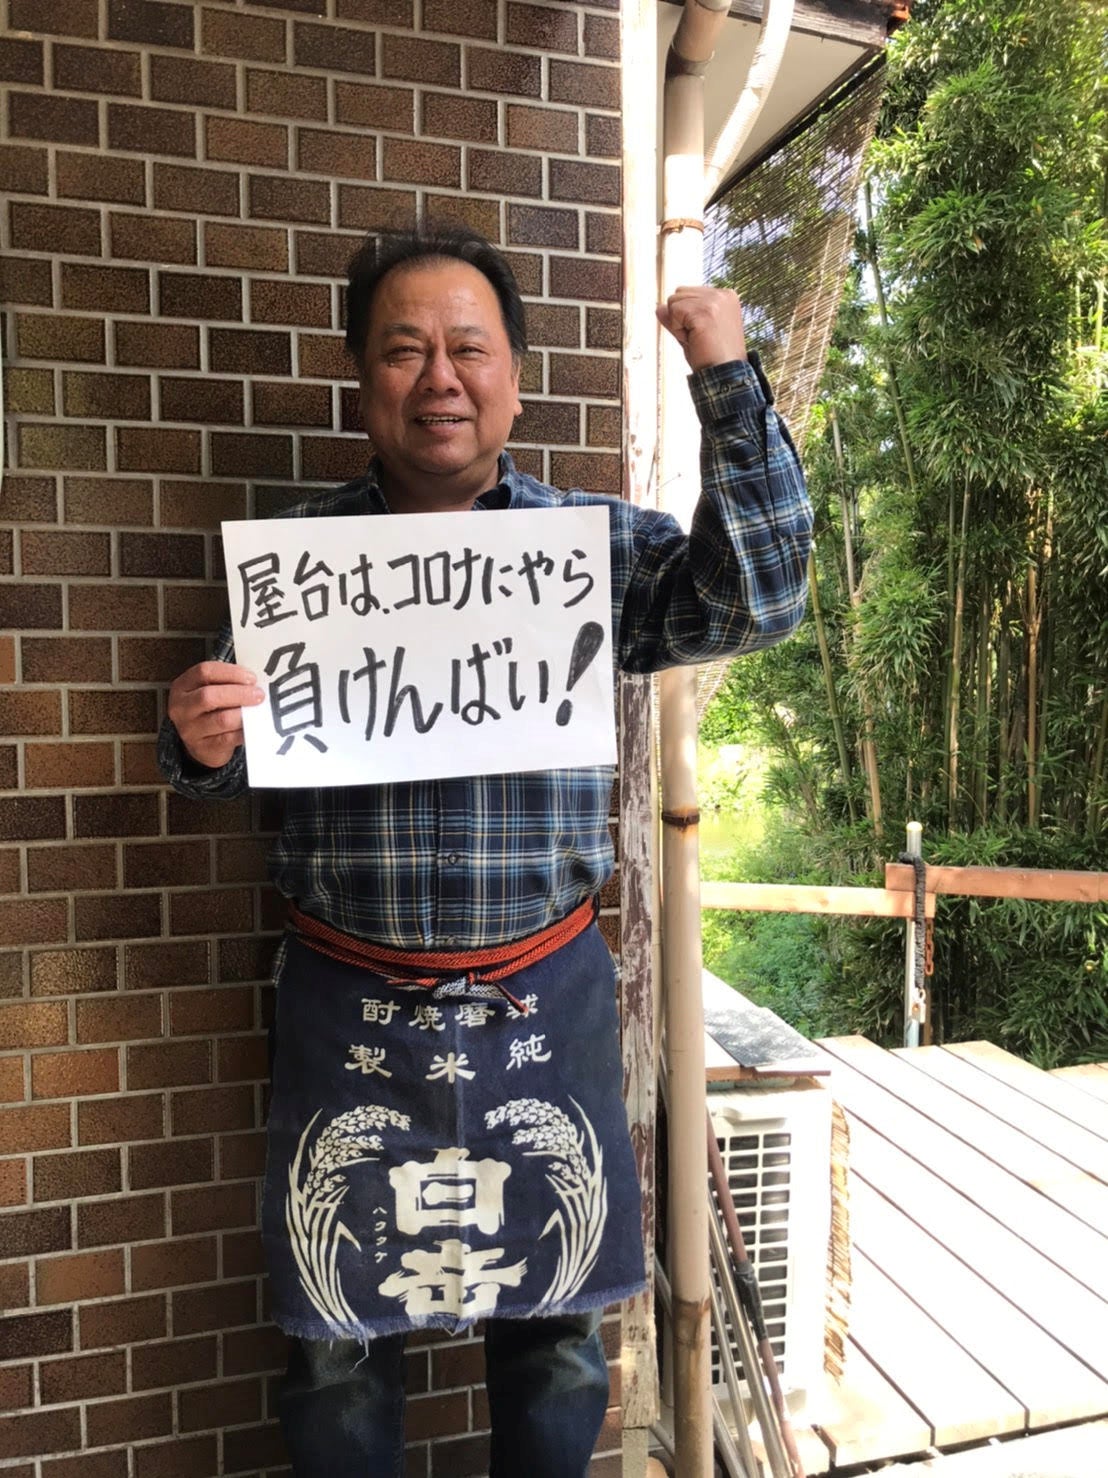 屋台は、コロナにやら
負けんばい!
球磨焼酎
純米製
白岳
ハクタケ